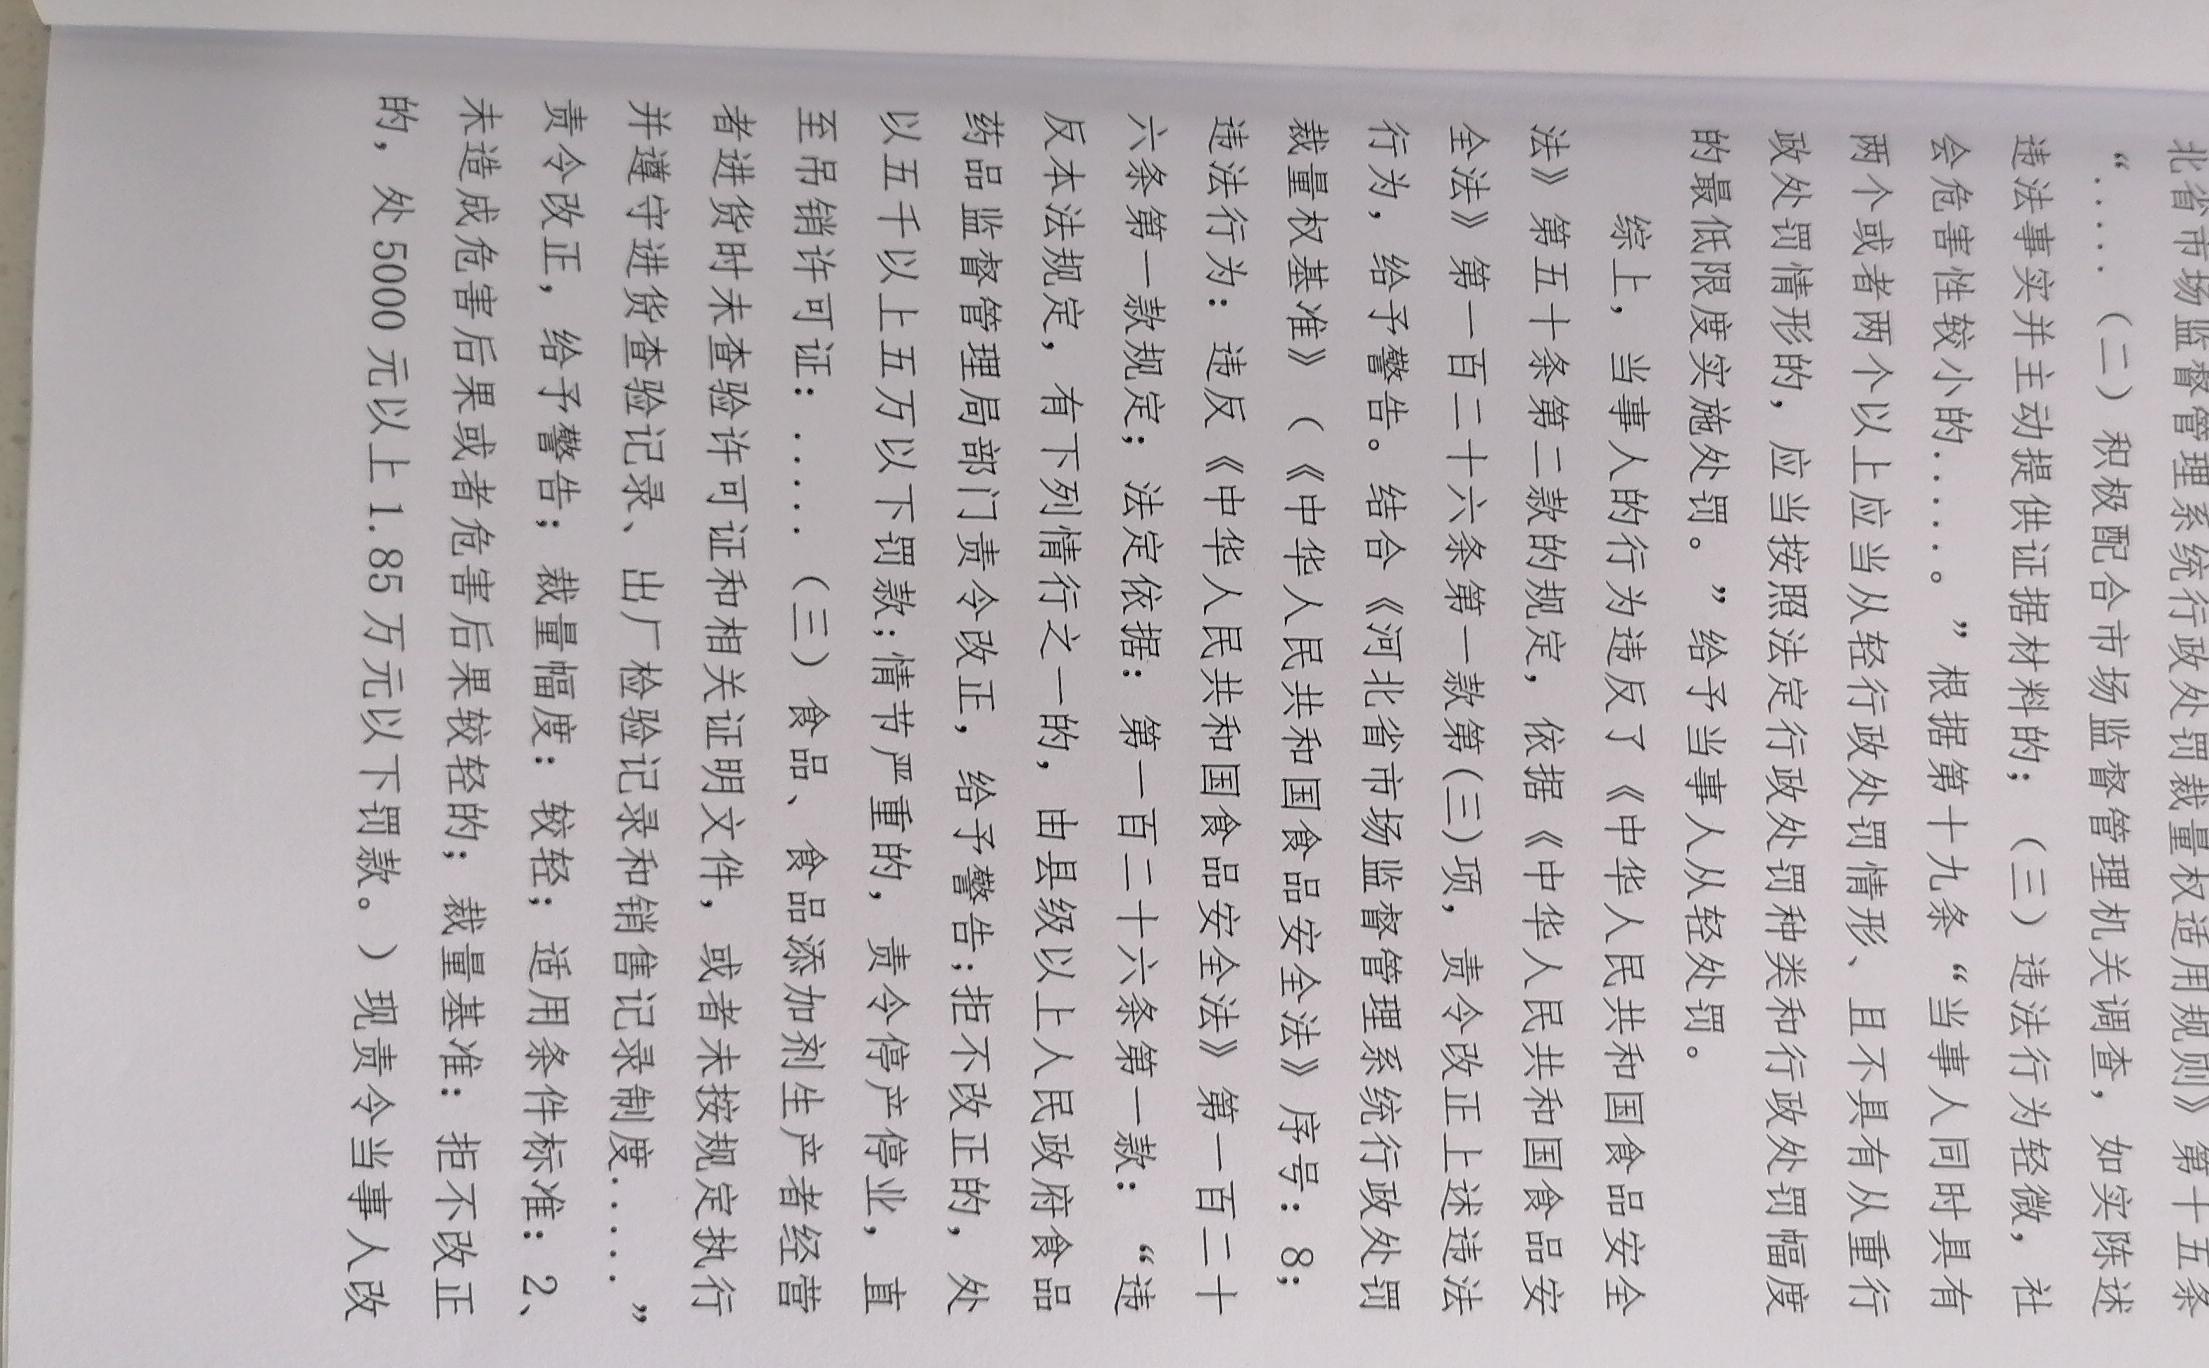 北省市场监督管理系统行政处罚裁量权适用规则》第十五条
“.....（二）积极配合市场监督管理机关调查，如实陈述
违法事实并主动提供证据材料的；（三）违法行为轻微，社
会危害性较小的......。”根据第十九条“当事人同时具有
两个或者两个以上应当从轻行政处罚情形、且不具有从重行
政处罚情形的，应当按照法定行政处罚种类和行政处罚幅度
的最低限度实施处罚。”给予当事人从轻处罚。
综上，当事人的行为违反了《中华人民共和国食品安全
法》第五十条第二款的规定，依据《中华人民共和国食品安
全法》第一百二十六条第一款第(三)项，责令改正上述违法
行为，给予警告。结合《河北省市场监督管理系统行政处罚
裁量权基准》（《中华人民共和国食品安全法》序号：8；
违法行为：违反《中华人民共和国食品安全法》第一百二十
六条第一款规定；法定依据：第一百二十六条第一款：“违
反本法规定，有下列情行之一的，由县级以上人民政府食品
药品监督管理局部门责令改正，给予警告；拒不改正的，处
以五千以上五万以下罚款；情节严重的，责令停产停业，直
至吊销许可证：.....（三）食品、食品添加剂生产者经营
者进货时未查验许可证和相关证明文件，或者未按规定执行
并遵守进货查验记录、出厂检验记录和销售记录制度.....”
责令改正，给予警告；裁量幅度：较轻；适用条件标准：2、
未造成危害后果或者危害后果较轻的；裁量基准：拒不改正
的，处5000元以上1.85万元以下罚款。）现责令当事人改